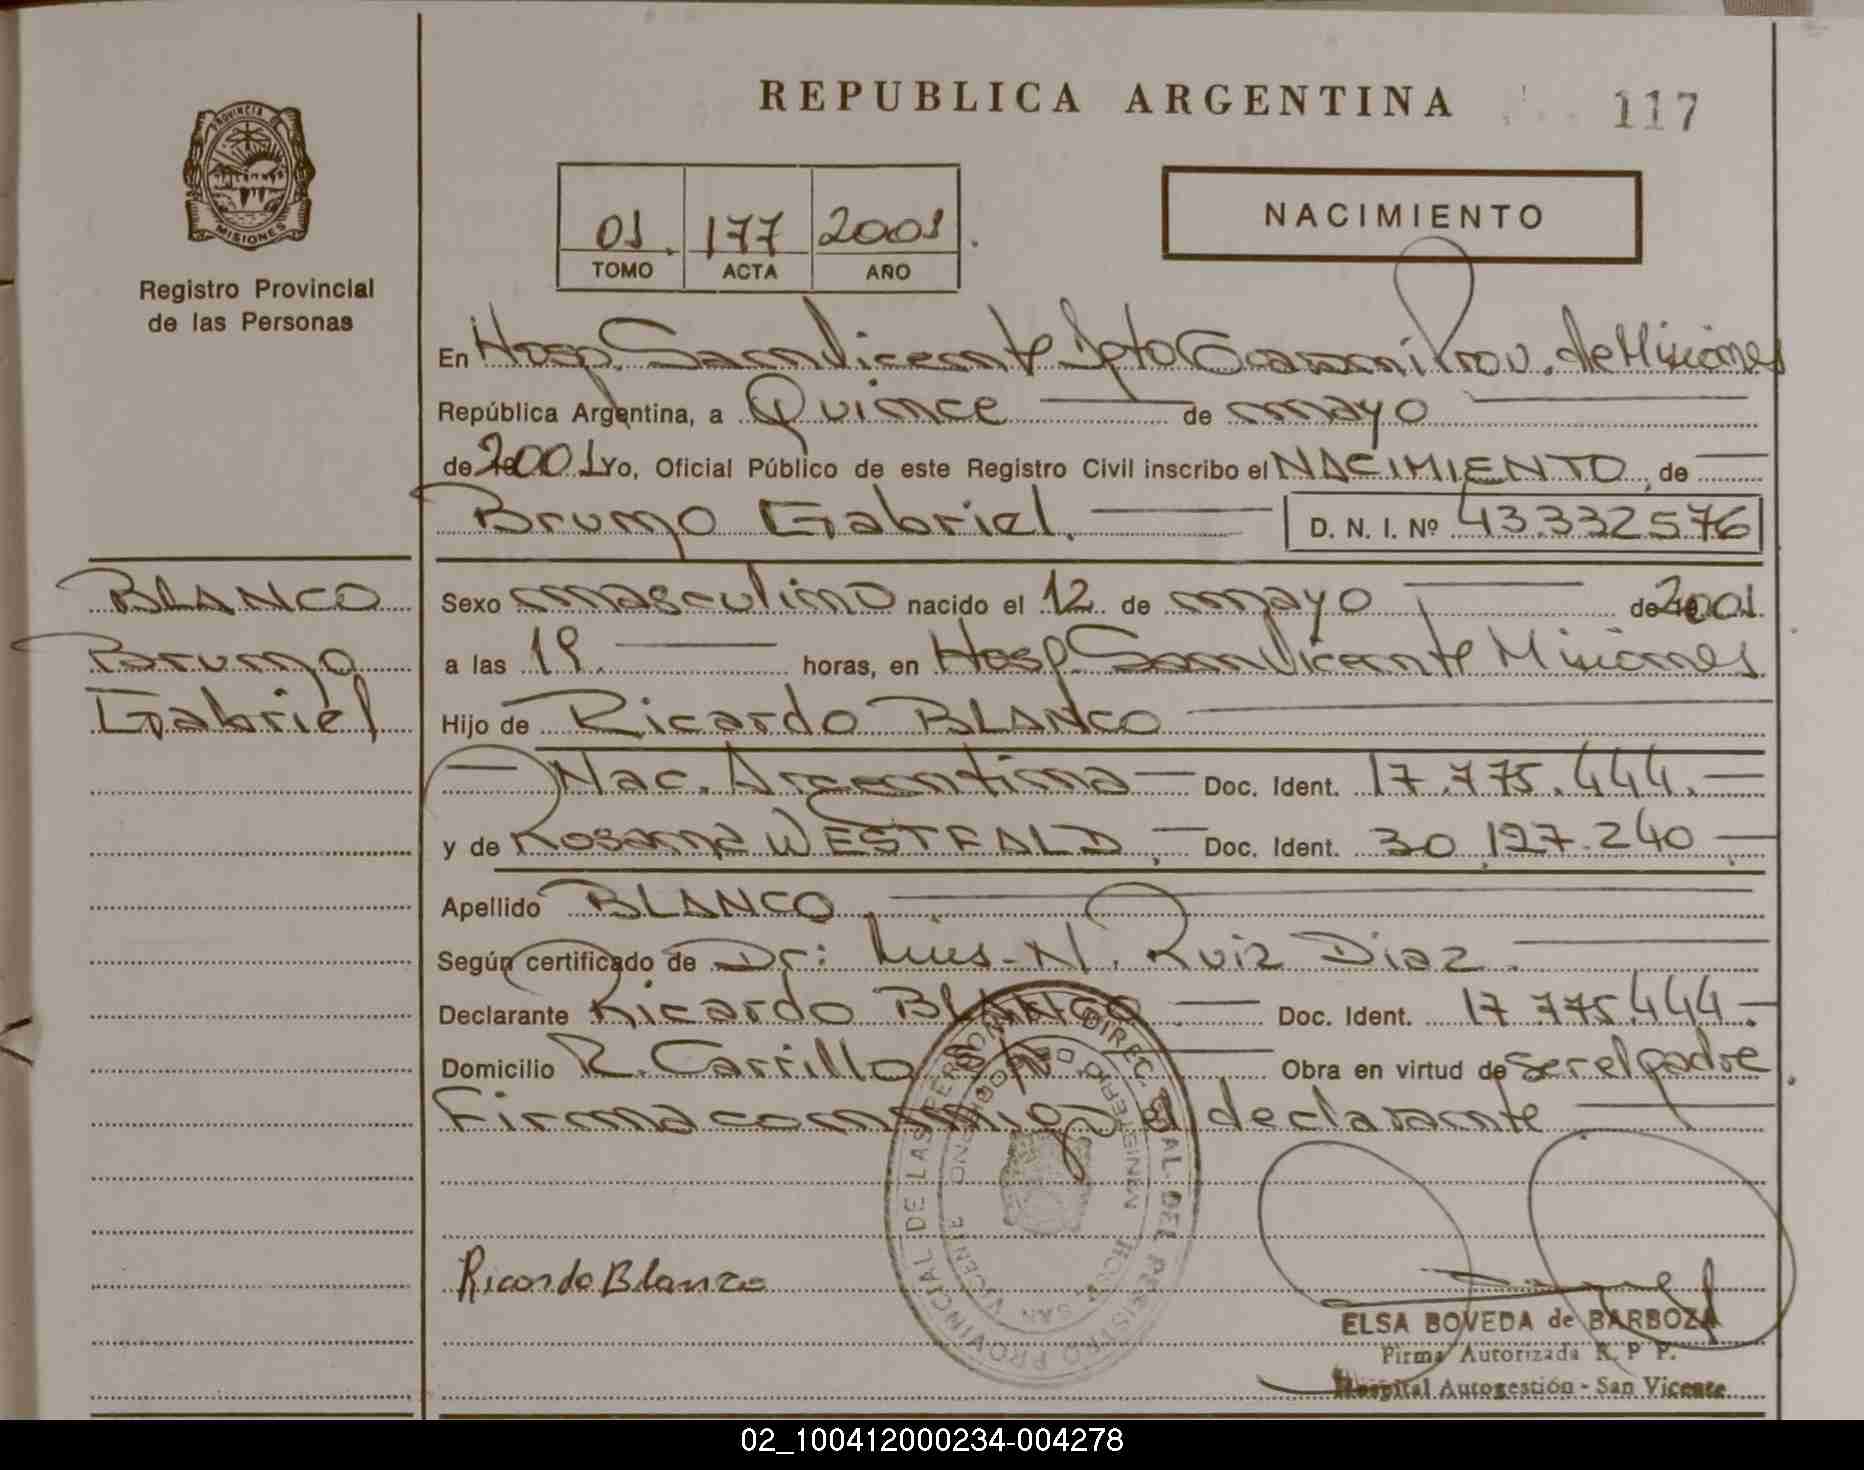 REPUBLICA ARGENTINA
117
PROVINCIA DE
MISIONES
Registro Provincial
de las Personas
01 177 2001
TOMO ACTA AÑO
NACIMIENTO
En Hosp. San Vicente Dpto Guaraní Prov. de Misiones
República Argentina, a Quince de mayo
de 2001 Yo, Oficial Público de este Registro Civil inscribo el NACIMIENTO, de
Bruno Gabriel. D. N. I. Nº 43.332.576
BLANCO
Bruno
Gabriel
Sexo masculino nacido el 12 de mayo de 2001
a las 19. horas, en Hosp. San Vicente Misiones
Hijo de Ricardo BLANCO
Nac. Argentina Doc. Ident. 17.775.444.
y de Rosana WESTFALD, Doc. Ident. 30.127.240
Apellido BLANCO
Según certificado de Dr: Luis N. Ruiz Diaz.
Declarante Ricardo BLANCO Doc. Ident. 17.775.444.
Domicilio R. Carrillo Obra en virtud de ser el padre
Firma conmigo el declarante
Ricardo Blanco
ELSA BOVEDA de BARBOZA
Firma Autorizada R. P. P.
Hospital Autogestión - San Vicente
02_100412000234-004278